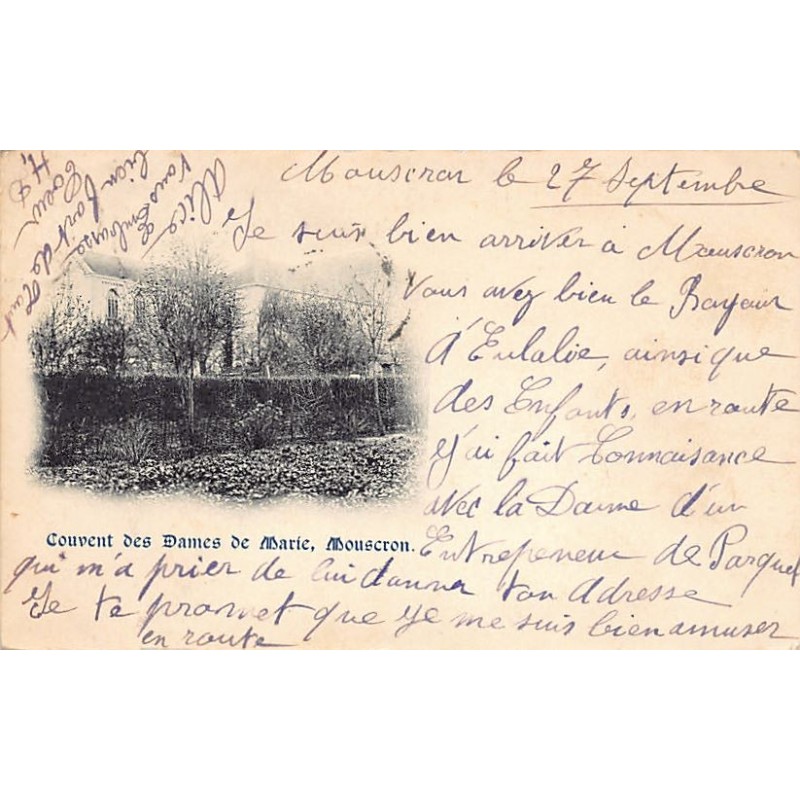 Mouscron le 27 Septembre
Je suis bien arriver à Mouscron
Vous avez bien le Bonjour
d'Eulalie, ainsi que
des Enfants, en route
j'ai fait Connaisance
avec la Dame d'un
Entrepeneur de Parquet
qui m'a prier de lui donner ton Adresse
Je te promet que je me suis bien amuser
en route
Alice
Vous Embrasse
bien fort de tout
Coeur
Couvent des Dames de Marie, Mouscron.